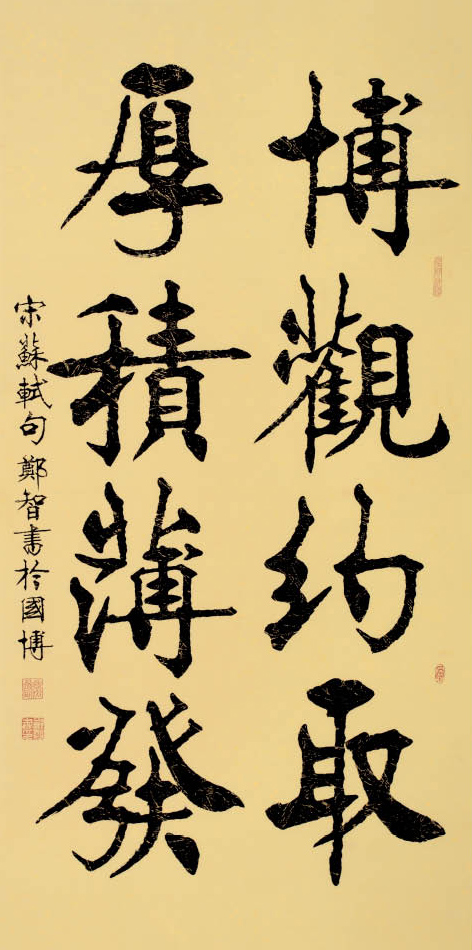 博觀約取
厚積薄發
宋蘇軾句 鄭智書於國博